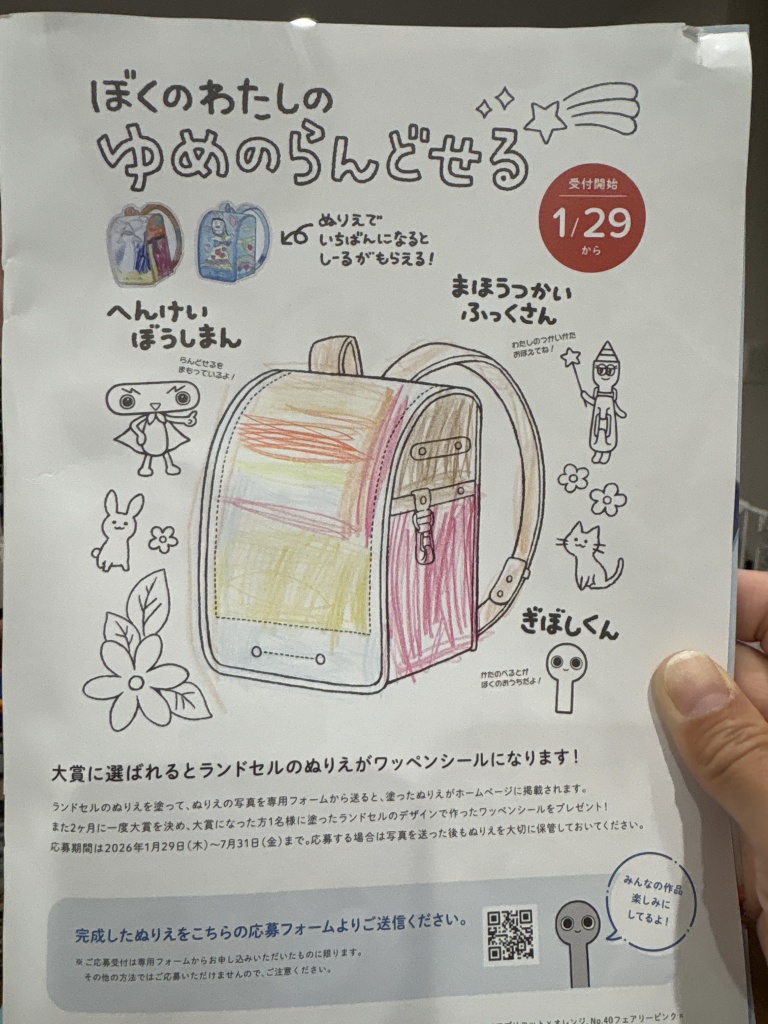 ぼくのわたしの
ゆめのらんどせる
受付開始
1/29
から
ぬりえで
いちばんになると
しーるがもらえる!
へんけい
ぼうしまん
らんどせるを
まもっているよ!
まほうつかい
ふっくさん
わたしのつかいかた
おぼえてね!
ぎぼしくん
かたのべるとが
ぼくのおうちだよ!
大賞に選ばれるとランドセルのぬりえがワッペンシールになります!
ランドセルのぬりえを塗って、ぬりえの写真を専用フォームから送ると、塗ったぬりえがホームページに掲載されます。
また2ヶ月に一度大賞を決め、大賞になった方1名様に塗ったランドセルのデザインで作ったワッペンシールをプレゼント!
応募期間は2026年1月29日(木)〜7月31日(金)まで。応募する場合は写真を送った後もぬりえを大切に保管しておいてください。
完成したぬりえをこちらの応募フォームよりご送信ください。
※ご応募受付は専用フォームからお申し込みいただいたものに限ります。
その他の方法ではご応募いただけませんので、ご注意ください。
みんなの作品
楽しみに
してるよ!
オレンジ、No.40フェアリーピンク×